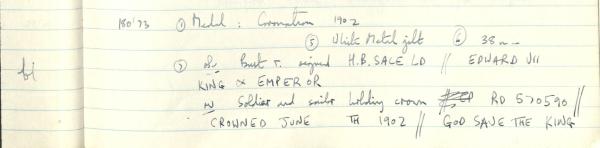 180'73 ① Medal : Coronation 1902
⑤ White Metal gilt ⑥ 38mm
bi ⑦ Obv Bust r. signed H.B. SALE LD // EDWARD VII
KING & EMPEROR
Rv Soldier and sailor holding crown RD 570590 //
CROWNED JUNE TH 1902 // GOD SAVE THE KING